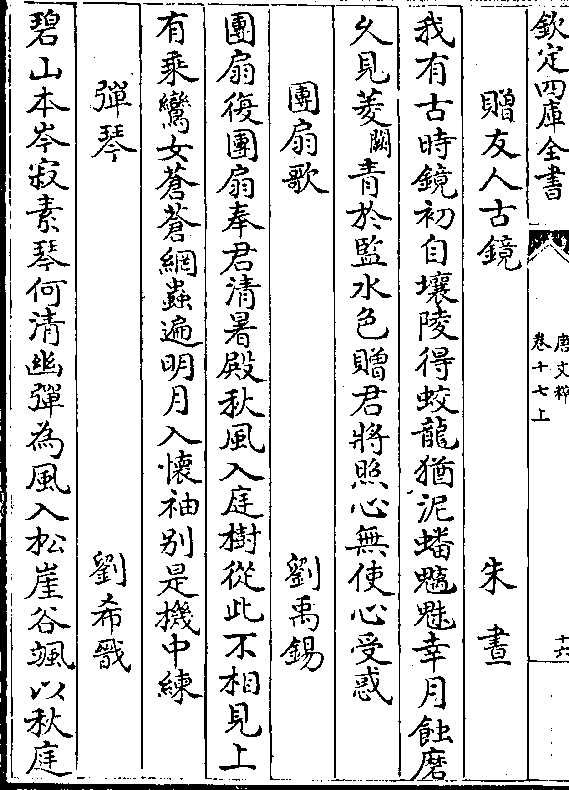 欽定四庫全書
唐文粹
卷十七上
十六
贈友人古鏡 朱晝
我有古時鏡初自壤陵得蛟龍猶泥蟠魑魅幸月蝕磨
乆見菱闕青於監水色贈君將照心無使心受惑
團扇歌 劉禹錫
團扇復團扇奉君清暑殿秋風入庭樹從此不相見上
有乘鸞女蒼蒼網蟲遍明月入懷袖别是機中練
彈琴 劉希戬
碧山本岑寂素琴何清幽彈為風入松崖谷颯以秋庭